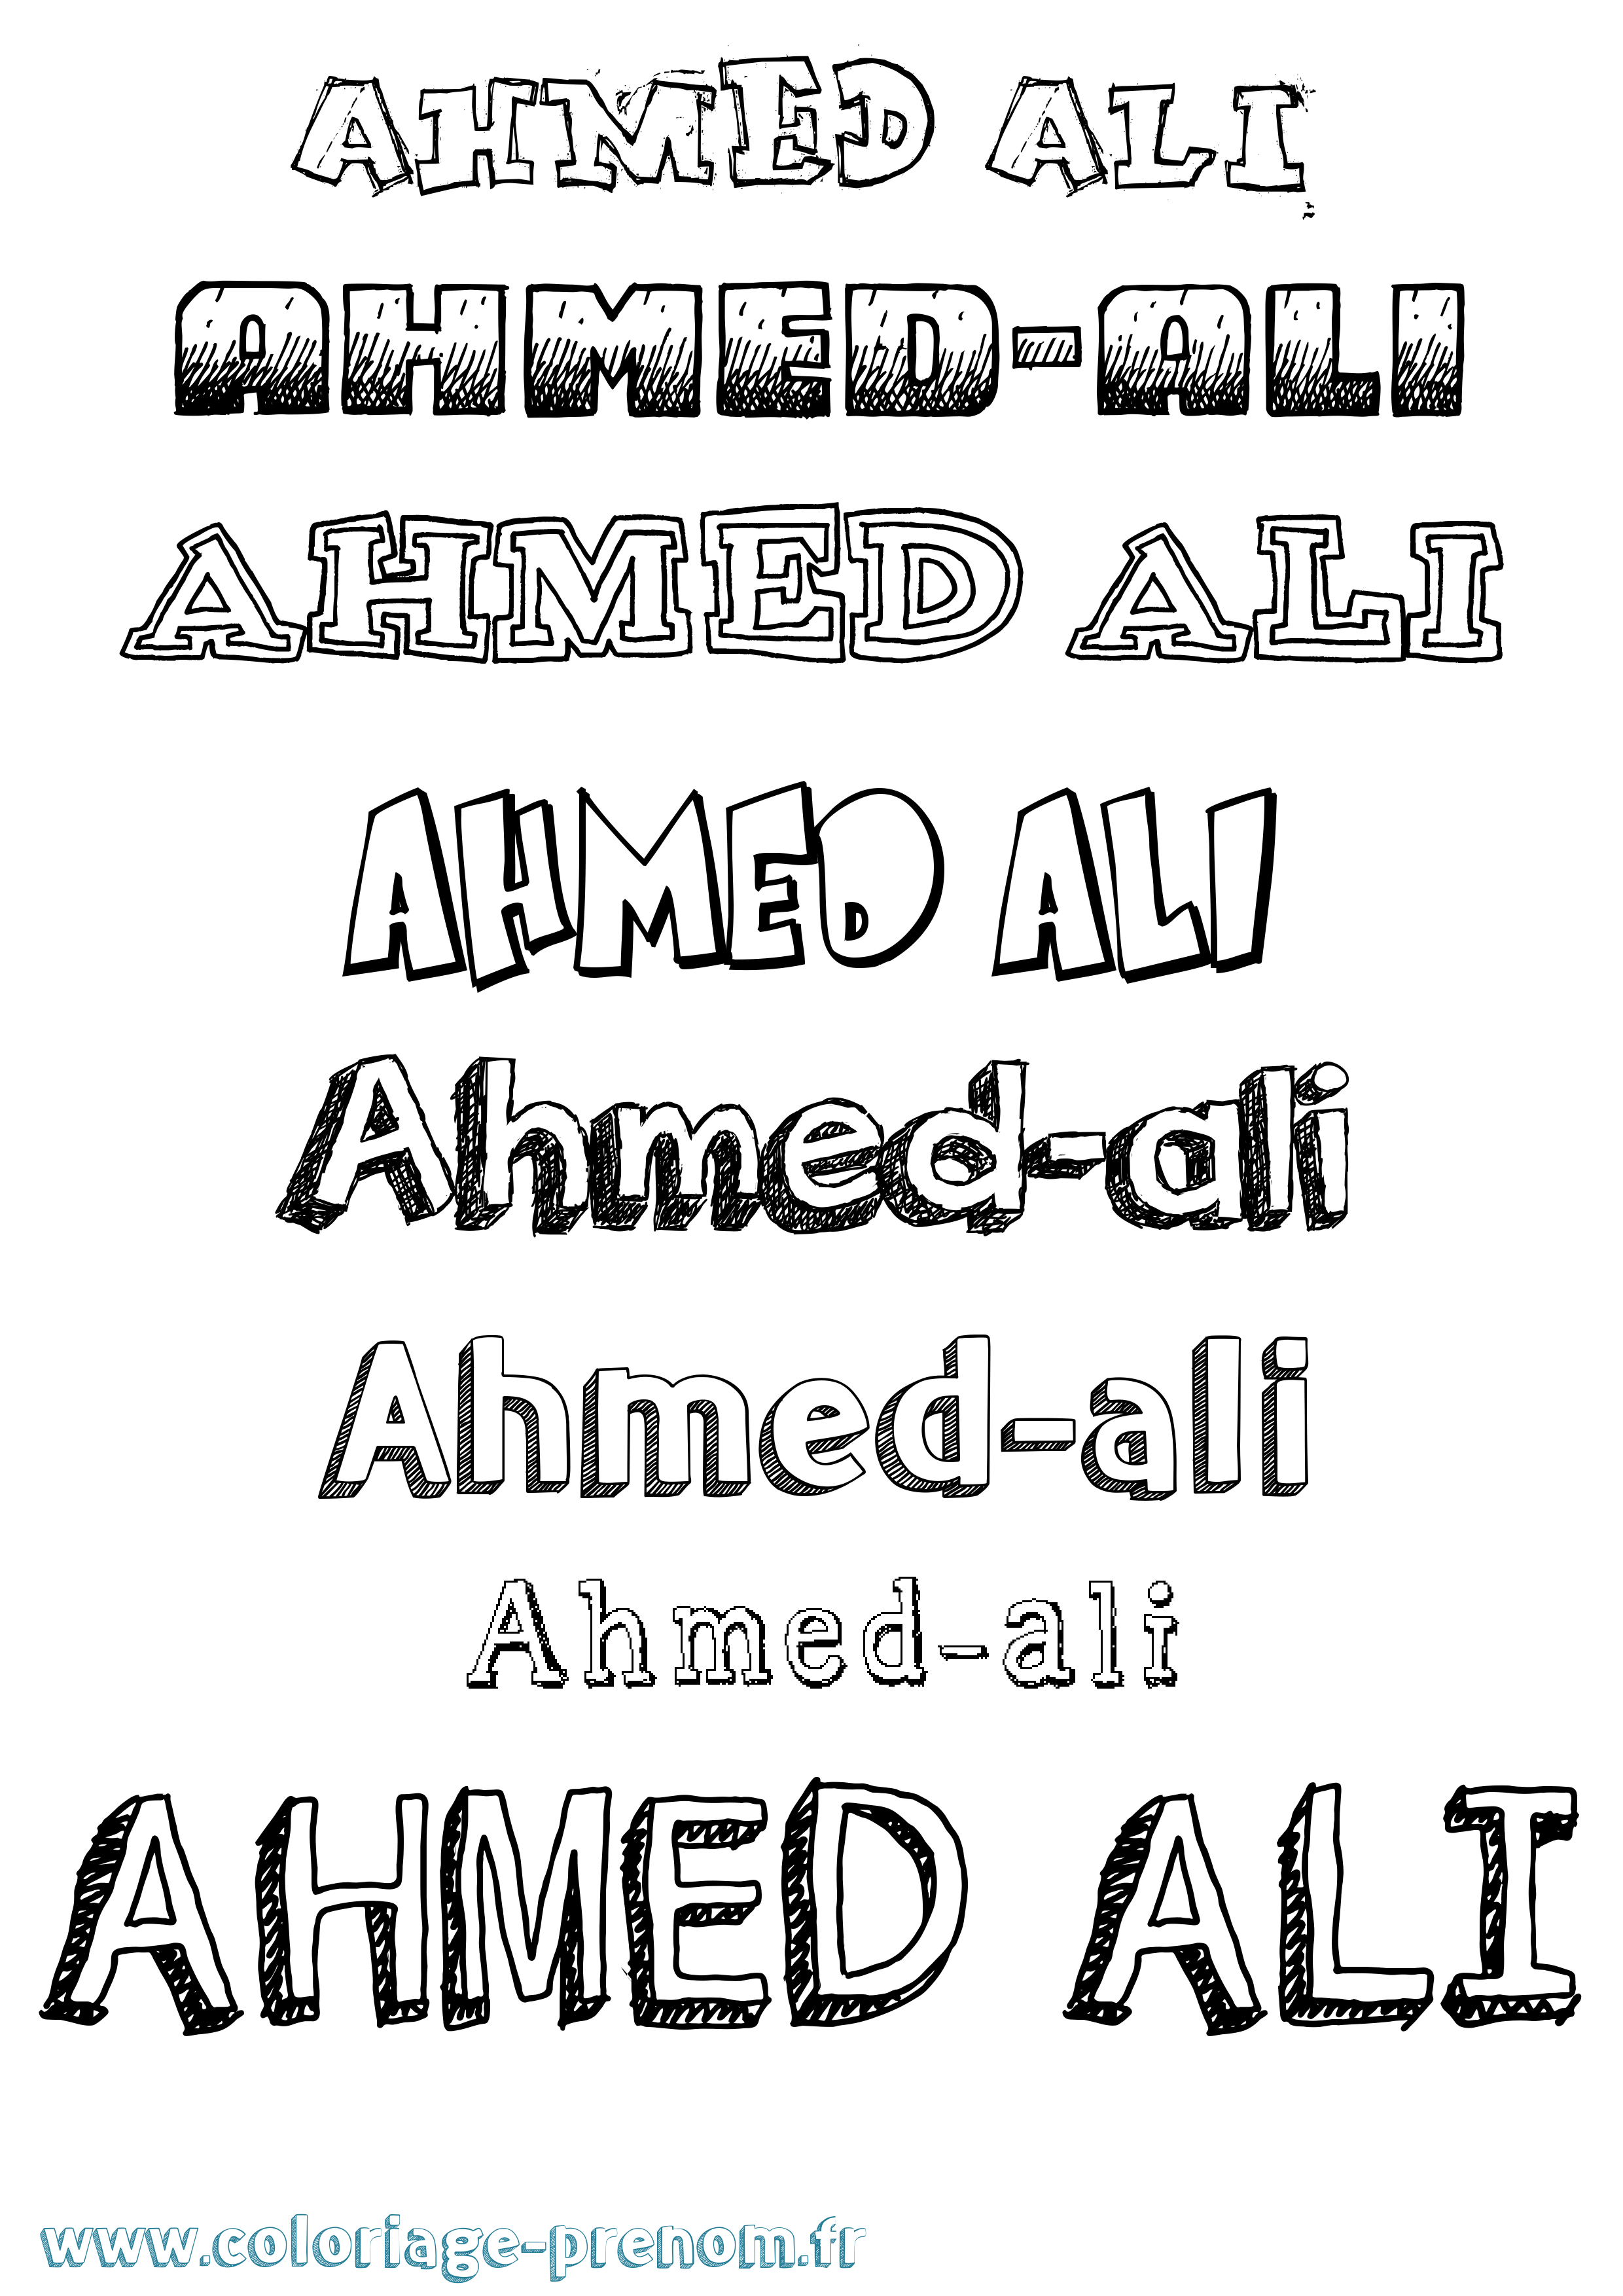 AHMED ALI
AHMED-ALI
AHMED ALI
AHMED ALI
Ahmed-ali
Ahmed-ali
Ahmed-ali
AHMED ALI
www.coloriage-prenom.fr